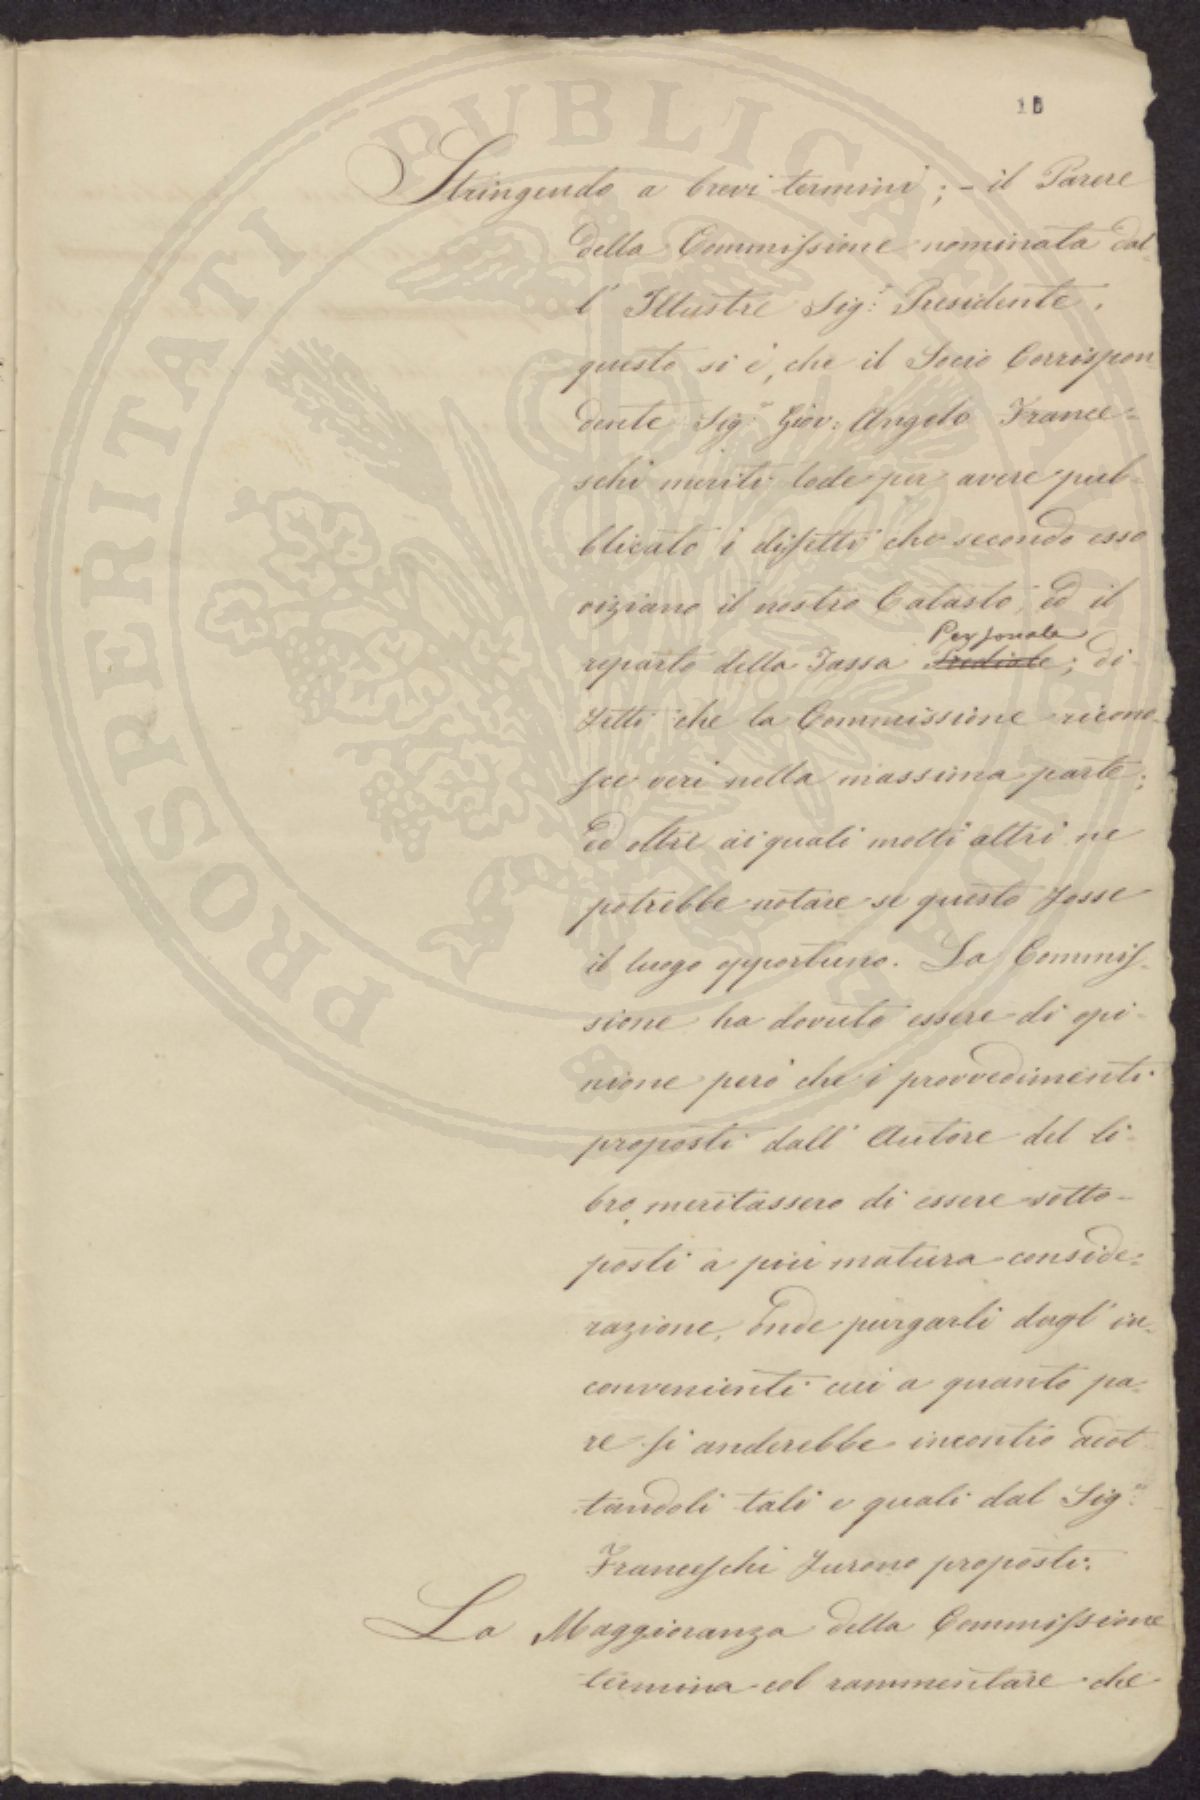 16
Stringendo a brevi termini; – il Parere
della Commissione nominata dal-
l' Illustre Sig.r Presidente,
questo si è, che il Socio Corrispon-
dente Sig.r Giov: Angelo France=
schi meriti lode per avere pub-
blicato i difetti che secondo esso
viziano il nostro Catasto, ed il
Personale
reparto della Tassa Prediale; di-
fetti che la Commissione ricono-
sce veri nella massima parte;
ed oltre ai quali molti altri ne
potrebbe notare se questo fosse
il luogo opportuno. La Commis-
sione ha dovuto essere di opi-
nione però che i provvedimenti
proposti dall' Autore del li-
bro, meritassero di essere sotto-
posti a più matura conside=
razione, onde purgarli dagl' in-
convenienti cui a quanto pa-
re si anderebbe incontro adot-
tandoli tali e quali dal Sig.r
Franceschi furono proposti.
La Maggioranza della Commissione
termina col rammentare che
PROSPERITATI PUBLICAE AUGENDAE